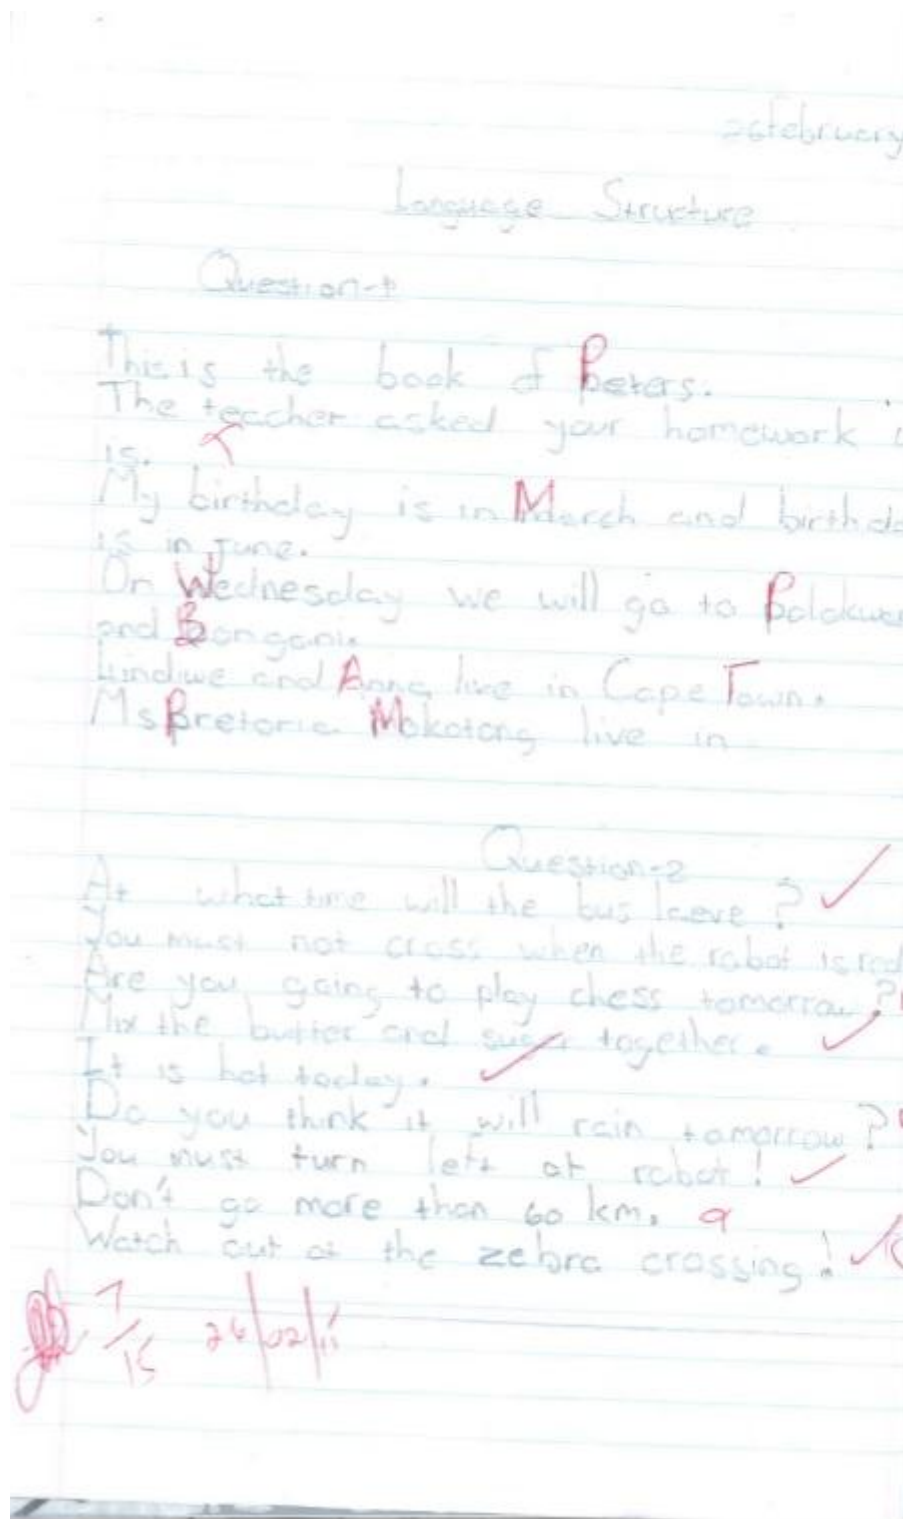 26 February
Language Structure
Question-1
This is the book of Peters.
The teacher asked your homework
is.
My birthday is in March and birthda
is in June.
On Wednesday we will go to Polokwa
and Bongani.
Lindiwe and Anna live in Cape Town.
Ms Pretoria Mokotong live in
Question-2
At what time will the bus leeve?
You must not cross when the robot is red
Are you going to play chess tomorrow?
Mix the butter and suger together.
It is hot today.
Do you think it will rain tomorrow?
You must turn left at robot!
Don't go more than 60 km.
Watch out at the zebra crossing!
7/15 26/02/11